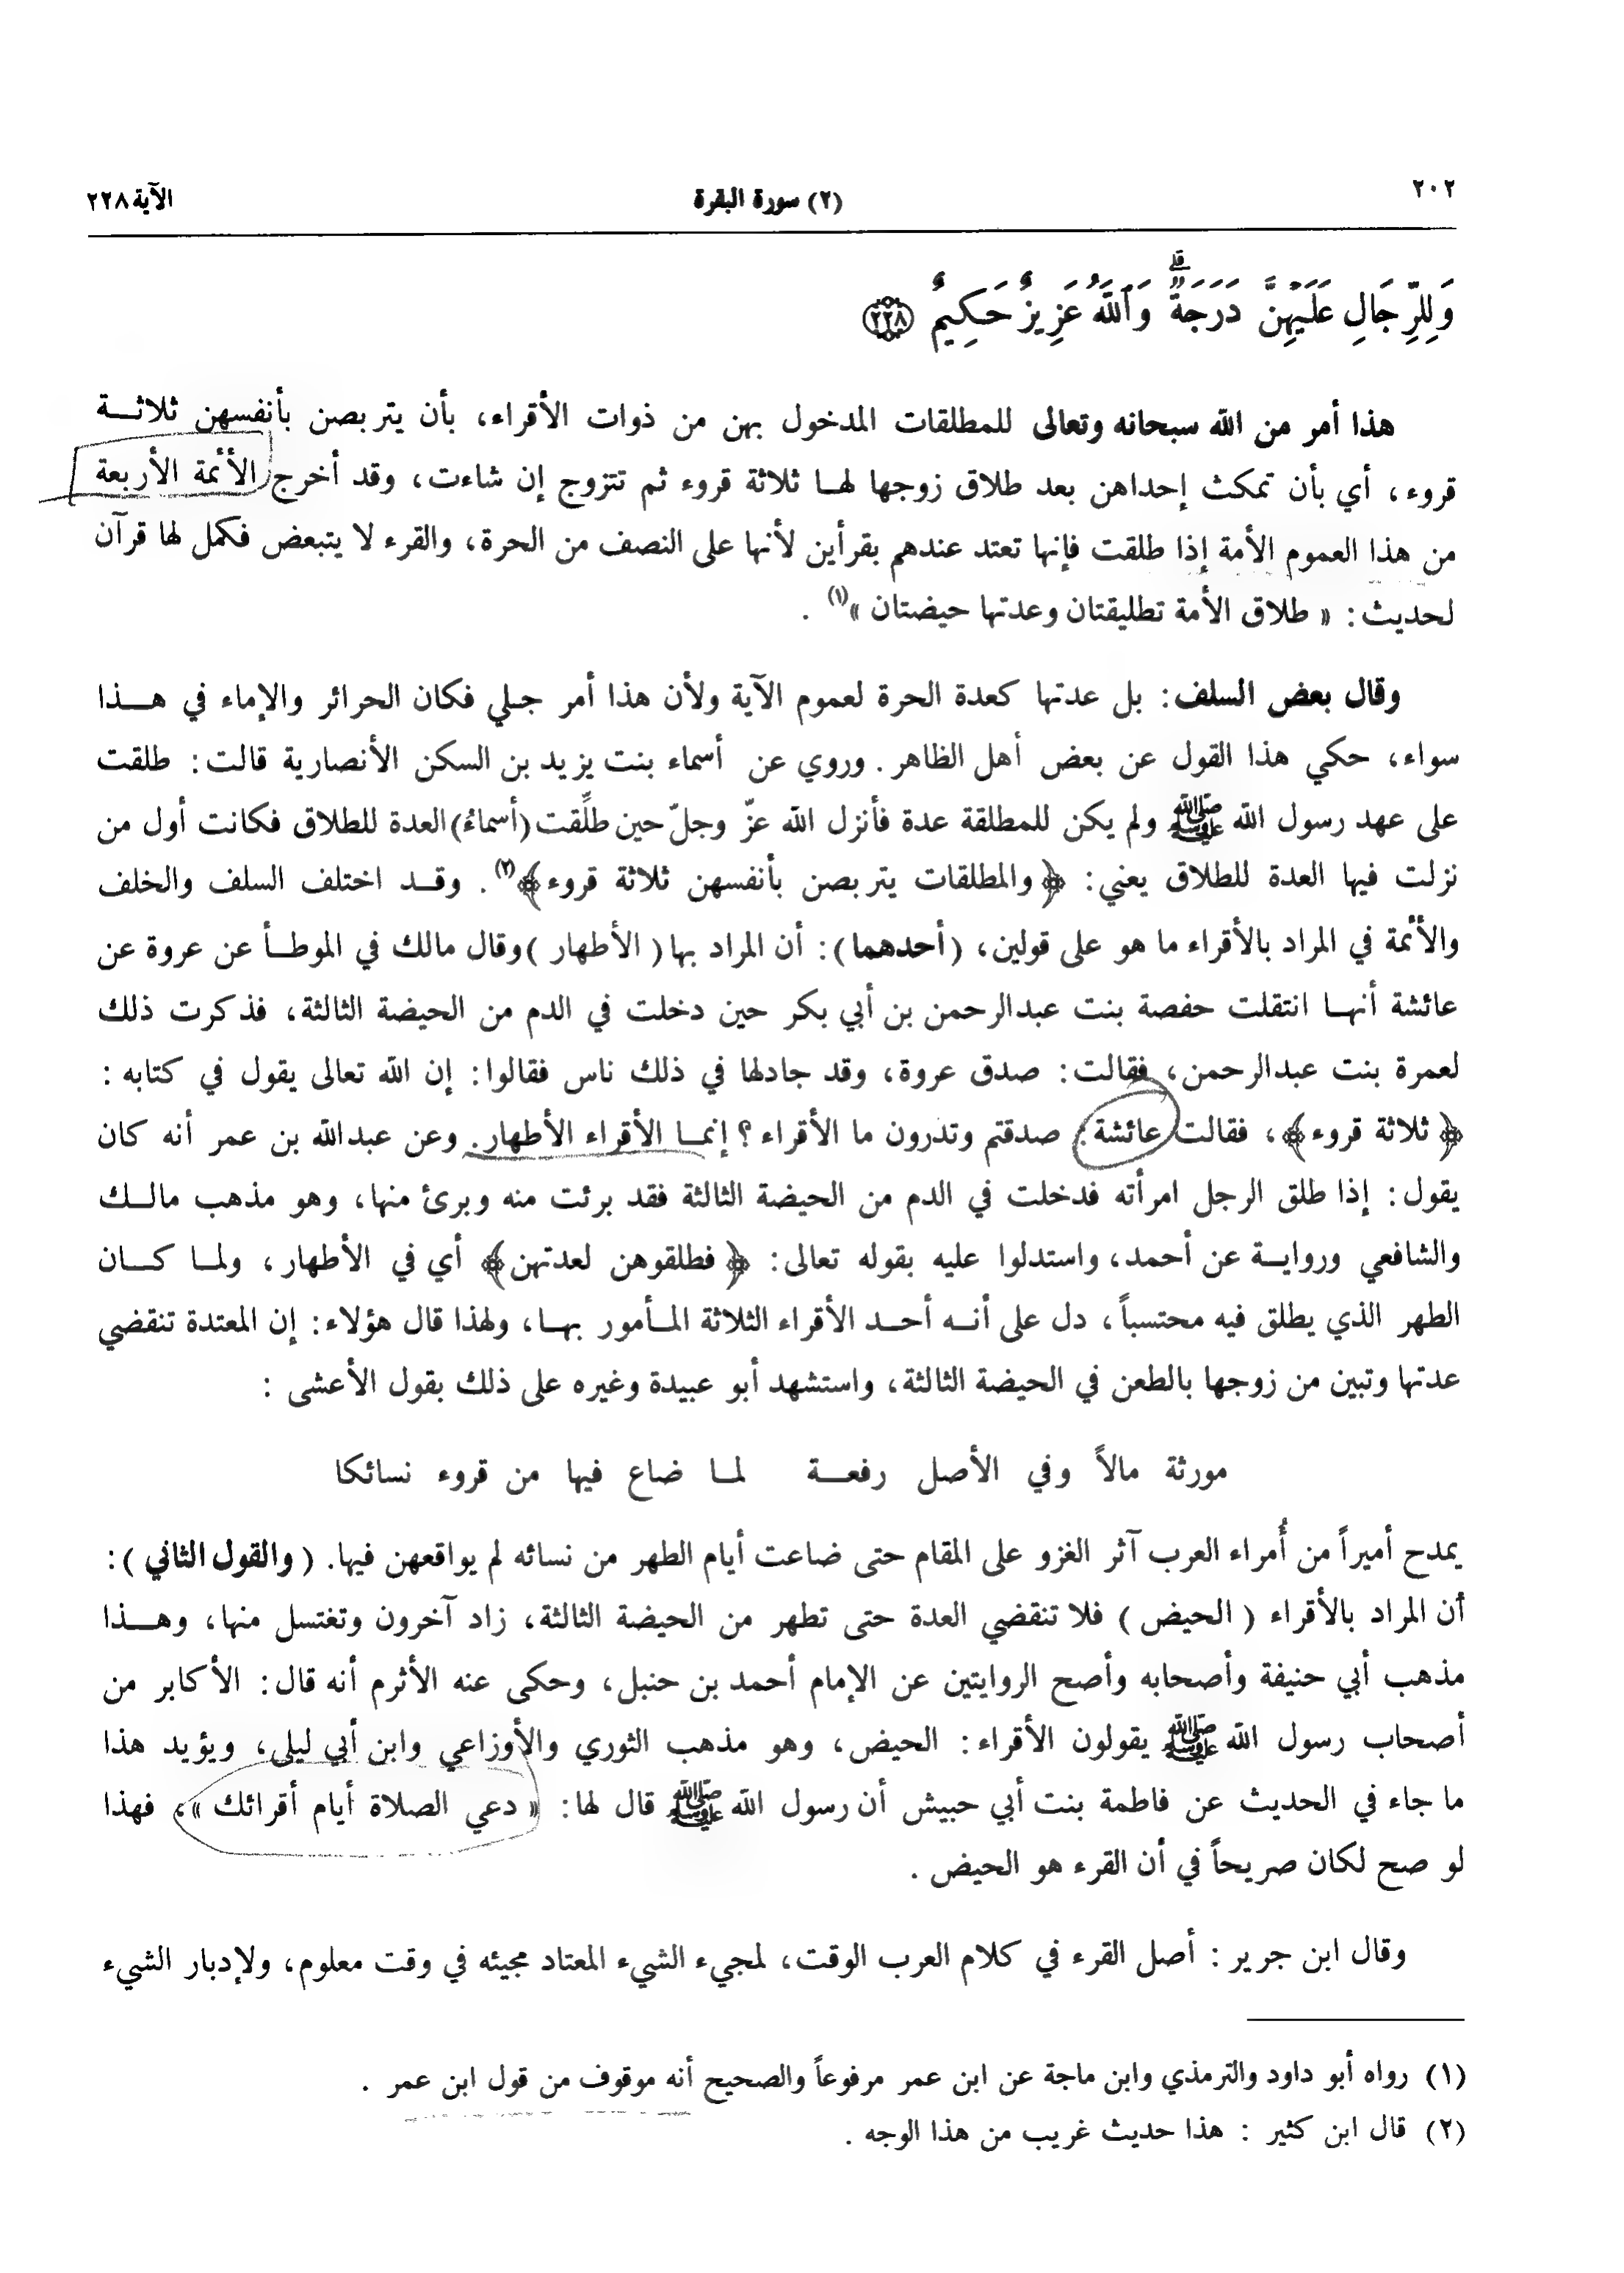 ٢٠٢
(٢) سورة البقرة
الآية ٢٢٨
وَلِلرِّجَالِ عَلَيْهِنَّ دَرَجَةٌ ۗ وَٱللَّهُ عَزِيزٌ حَكِيمٌ ﴿٢٢٨﴾
هذا أمر من الله سبحانه وتعالى للمطلقات المدخول بهن من ذوات الأقراء، بأن يتربصن بأنفسهن ثلاثة
قروء، أي بأن تمكث إحداهن بعد طلاق زوجها لها ثلاثة قروء ثم تتزوج إن شاءت، وقد أخرج الأئمة الأربعة
من هذا العموم الأمة إذا طلقت فإنها تعتد عندهم بقرأين لأنها على النصف من الحرة، والقرء لا يتبعض فكمل لها قرآن
لحديث: « طلاق الأمة تطليقتان وعدتها حيضتان »(١) .
وقال بعض السلف: بل عدتها كعدة الحرة لعموم الآية ولأن هذا أمر جلي فكان الحرائر والإماء في هذا
سواء، حكي هذا القول عن بعض أهل الظاهر. وروي عن أسماء بنت يزيد بن السكن الأنصارية قالت: طلقت
على عهد رسول الله ﷺ ولم يكن للمطلقة عدة فأنزل الله عزّ وجلّ حين طلّقت (أسماءُ) العدة للطلاق فكانت أول من
نزلت فيها العدة للطلاق يعني: ﴿والمطلقات يتربصن بأنفسهن ثلاثة قروء﴾(٢). وقد اختلف السلف والخلف
والأئمة في المراد بالأقراء ما هو على قولين، (أحدهما): أن المراد بها ( الأطهار ) وقال مالك في الموطأ عن عروة عن
عائشة أنها انتقلت حفصة بنت عبدالرحمن بن أبي بكر حين دخلت في الدم من الحيضة الثالثة، فذكرت ذلك
لعمرة بنت عبدالرحمن، فقالت: صدق عروة، وقد جادلها في ذلك ناس فقالوا: إن الله تعالى يقول في كتابه :
﴿ثلاثة قروء﴾، فقالت عائشة: صدقتم وتدرون ما الأقراء ؟ إنما الأقراء الأطهار. وعن عبدالله بن عمر أنه كان
يقول: إذا طلق الرجل امرأته فدخلت في الدم من الحيضة الثالثة فقد برئت منه وبرئ منها، وهو مذهب مالك
والشافعي ورواية عن أحمد، واستدلوا عليه بقوله تعالى: ﴿فطلقوهن لعدتهن﴾ أي في الأطهار، ولما كان
الطهر الذي يطلق فيه محتسباً، دل على أنه أحد الأقراء الثلاثة المأمور بها، ولهذا قال هؤلاء: إن المعتدة تنقضي
عدتها وتبين من زوجها بالطعن في الحيضة الثالثة، واستشهد أبو عبيدة وغيره على ذلك بقول الأعشى :
مورثة مالاً وفي الأصل رفعة لما ضاع فيها من قروء نسائكا
يمدح أميراً من أُمراء العرب آثر الغزو على المقام حتى ضاعت أيام الطهر من نسائه لم يواقعهن فيها. ( والقول الثاني ):
أن المراد بالأقراء ( الحيض ) فلا تنقضي العدة حتى تطهر من الحيضة الثالثة، زاد آخرون وتغتسل منها، وهذا
مذهب أبي حنيفة وأصحابه وأصح الروايتين عن الإمام أحمد بن حنبل، وحكى عنه الأثرم أنه قال: الأكابر من
أصحاب رسول الله ﷺ يقولون الأقراء: الحيض، وهو مذهب الثوري والأوزاعي وابن أبي ليلى، ويؤيد هذا
ما جاء في الحديث عن فاطمة بنت أبي حبيش أن رسول الله ﷺ قال لها: « دعي الصلاة أيام أقرائك »، فهذا
لو صح لكان صريحاً في أن القرء هو الحيض .
وقال ابن جرير : أصل القرء في كلام العرب الوقت، لمجيء الشيء المعتاد مجيئه في وقت معلوم، ولإدبار الشيء
(١) رواه أبو داود والترمذي وابن ماجة عن ابن عمر مرفوعاً والصحيح أنه موقوف من قول ابن عمر .
(٢) قال ابن كثير : هذا حديث غريب من هذا الوجه .